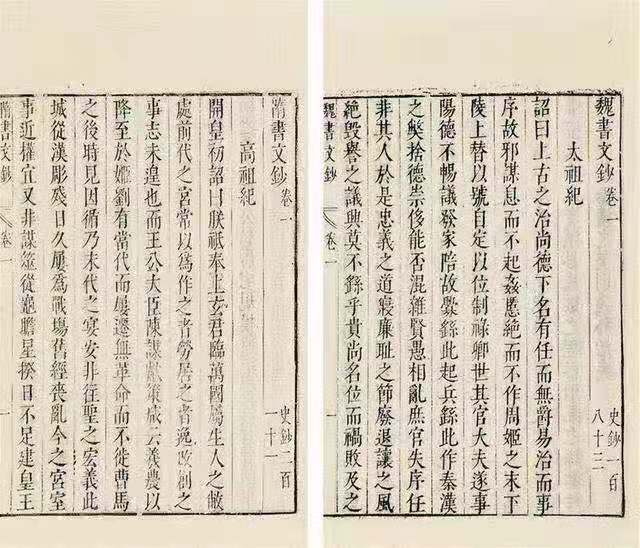 魏書文鈔卷一
史鈔一百
八十三
太祖紀
詔曰上古之治尚德下名有任而無爵易治而事
序故邪謀息而不起姦慝絶而不作周姬之末下
陵上替以號自定以位制祿卿世其官大夫遂事
陽德不暢議發家陪故釁繇此起兵繇此作秦漢
之弊捨德崇侈能否混雜賢愚相亂庶官失序任
非其人於是忠義之道寢廉耻之節廢退讓之風
絶毀譽之議興莫不繇乎貴尚名位而禍敗及之
魏書文鈔 卷一 一
隋書文鈔卷一
史鈔二百
一十一
高祖紀
開皇初詔曰朕祗奉上玄君臨萬國屬生人之敝
處前代之宮常以爲作之者勞居之者逸改創之
事志未遑也而王公大臣陳謀獻策咸云羲農以
降至於姬劉有當代而屢遷無革命而不徙曹馬
之後時見因循乃末代之宴安非往聖之宏義此
城從漢彫殘日久屢爲戰塲舊經喪亂今之宮室
事近權宜又非謀筮從龜瞻星揆日不足建皇王
隋書文鈔 卷一 一